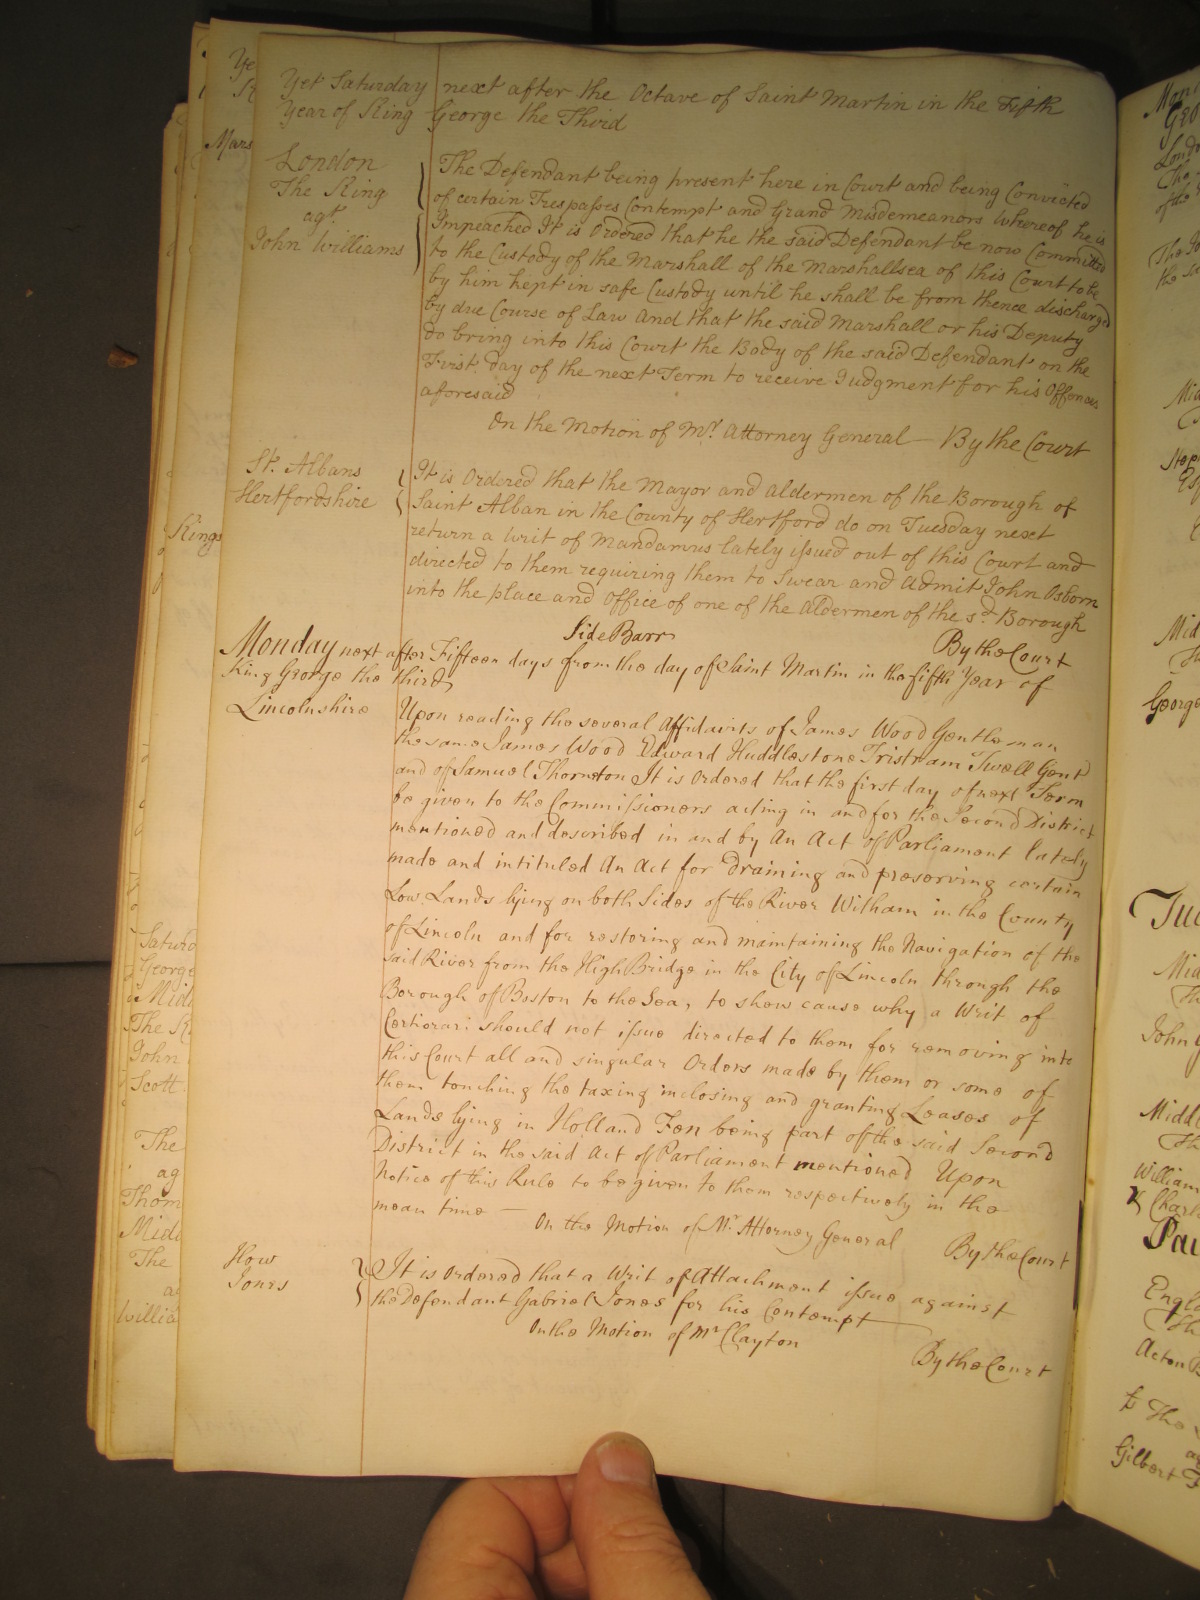 Yet Saturday next after the Octave of Saint Martin in the Fifth
Year of King George the Third
London
The King
agt.
John Williams
The Defendant being present here in Court and being Convicted
of certain Trespasses Contempt and Grand Misdemeanors Whereof he is
Impeached It is Ordered that he the said Defendant be now Committed
to the Custody of the Marshall of the Marshallsea of this Court to be
by him kept in safe Custody until he shall be from thence discharged
by due Course of Law And that the said Marshall or his Deputy
do bring into this Court the Body of the said Defendant on the
First day of the next Term to receive Judgment for his Offences
aforesaid
On the Motion of Mr. Attorney General — By the Court
St. Albans
Hertfordshire
It is Ordered that the Mayor and Aldermen of the Borough of
Saint Alban in the County of Hertford do on Tuesday next
return a Writ of Mandamus lately issued out of this Court and
directed to them requiring them to Swear and Admit John Osborn
into the place and Office of one of the Aldermen of the sd. Borough
Side Barr
By the Court
Monday next after Fifteen days from the day of Saint Martin in the fifth Year of
King George the third
Lincolnshire
Upon reading the several Affidavits of James Wood Gentleman
the same James Wood Edward Huddlestone Tristram Twell Gent
and of Samuel Thornton It is Ordered that the first day of next Term
be given to the Commissioners acting in and for the Second District
mentioned and described in and by An Act of Parliament lately
made and intituled An Act for Draining and preserving certain
Low Lands lying on both Sides of the River Witham in the County
of Lincoln and for restoring and maintaining the Navigation of the
said River from the High Bridge in the City of Lincoln through the
Borough of Boston to the Sea, to shew cause why a Writ of
Certiorari should not issue directed to them for removing into
this Court all and singular Orders made by them or some of
them touching the taxing inclosing and granting Leases of
Lands lying in Holland Fen being part of the said Second
District in the said Act of Parliament mentioned Upon
Notice of this Rule to be given to them respectively in the
mean time —
On the Motion of Mr. Attorney General
By the Court
How
Jones
It is Ordered that a Writ of Attachment issue against
the Defendant Gabriel Jones for his Contempt
On the Motion of Mr Clayton
By the Court